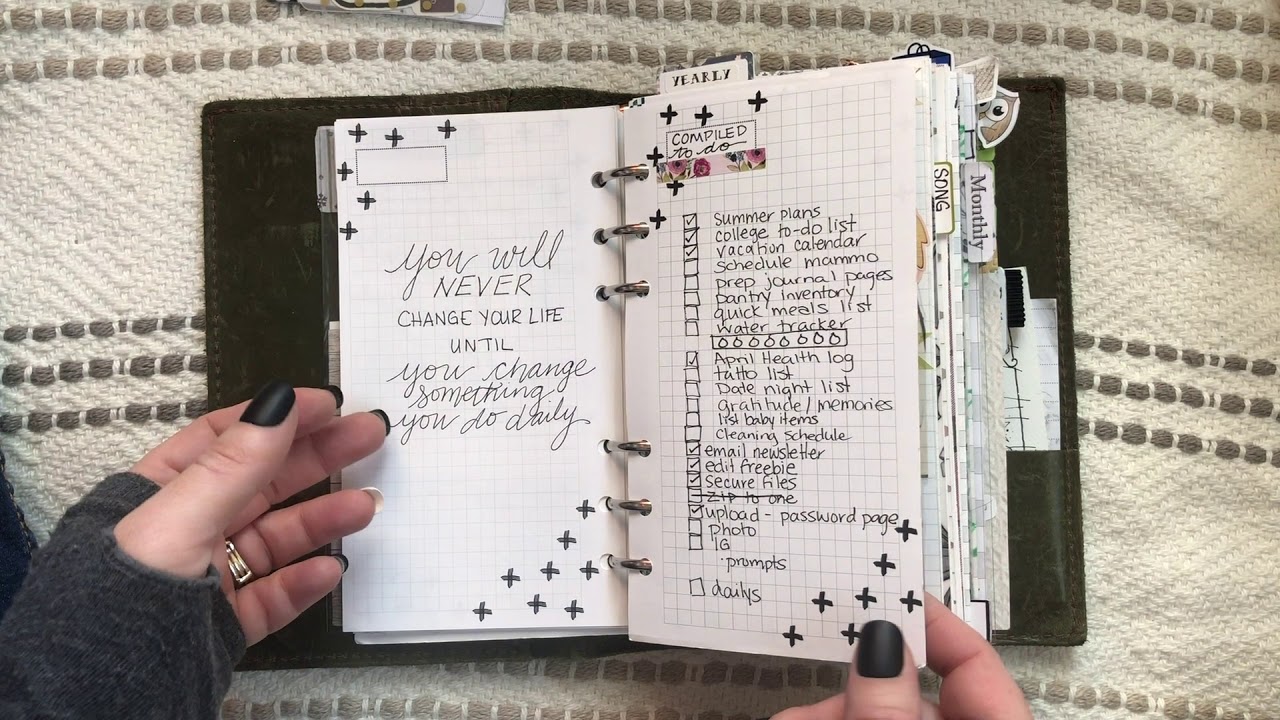 you will
NEVER
CHANGE YOUR LIFE
UNTIL
you change
something
you do daily
YEARLY
COMPILED
to do
Summer plans
college to-do list
vacation calendar
schedule mammo
prep journal pages
pantry inventory
quick meals list
water tracker
April Health log
tatto list
Date night list
gratitude / memories
list baby items
Cleaning schedule
email newsletter
edit freebie
Secure files
Zip to one
upload - password page
photo
IG
· prompts
dailys
SDNG
Monthly